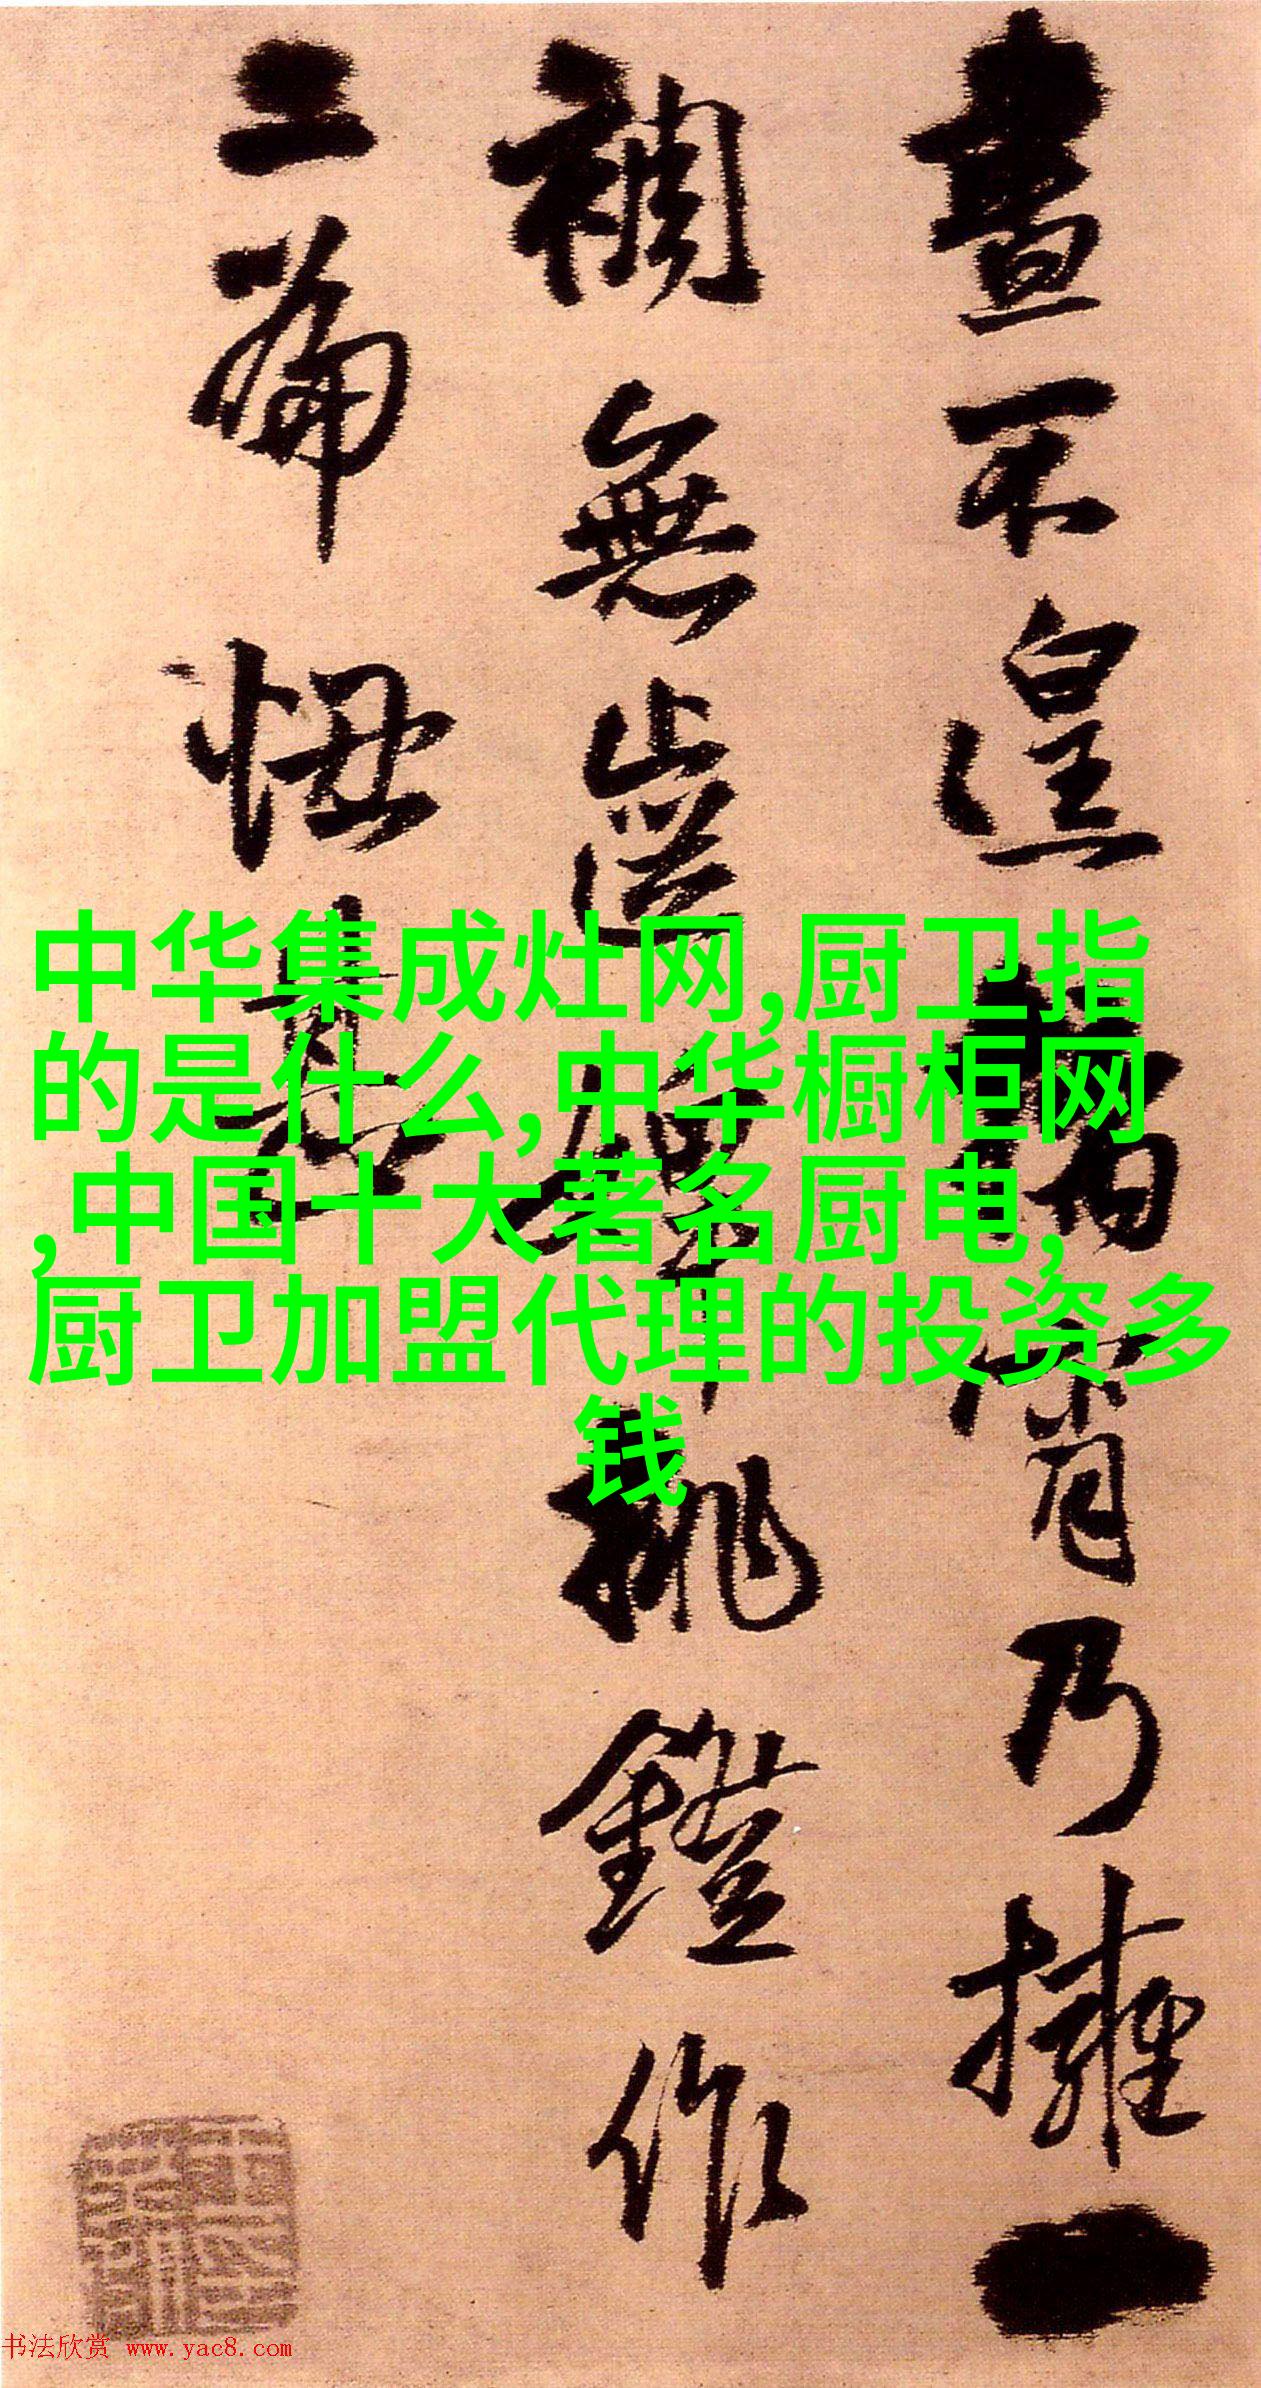 晝不遑宵乃擁一
裯無挑鐙作
二篇忸
中华集成灶网,厨卫指
的是什么,中华橱柜网
,中国十大著名厨电,
厨卫加盟代理的投资多
钱
书法欣赏 www.yac8.com